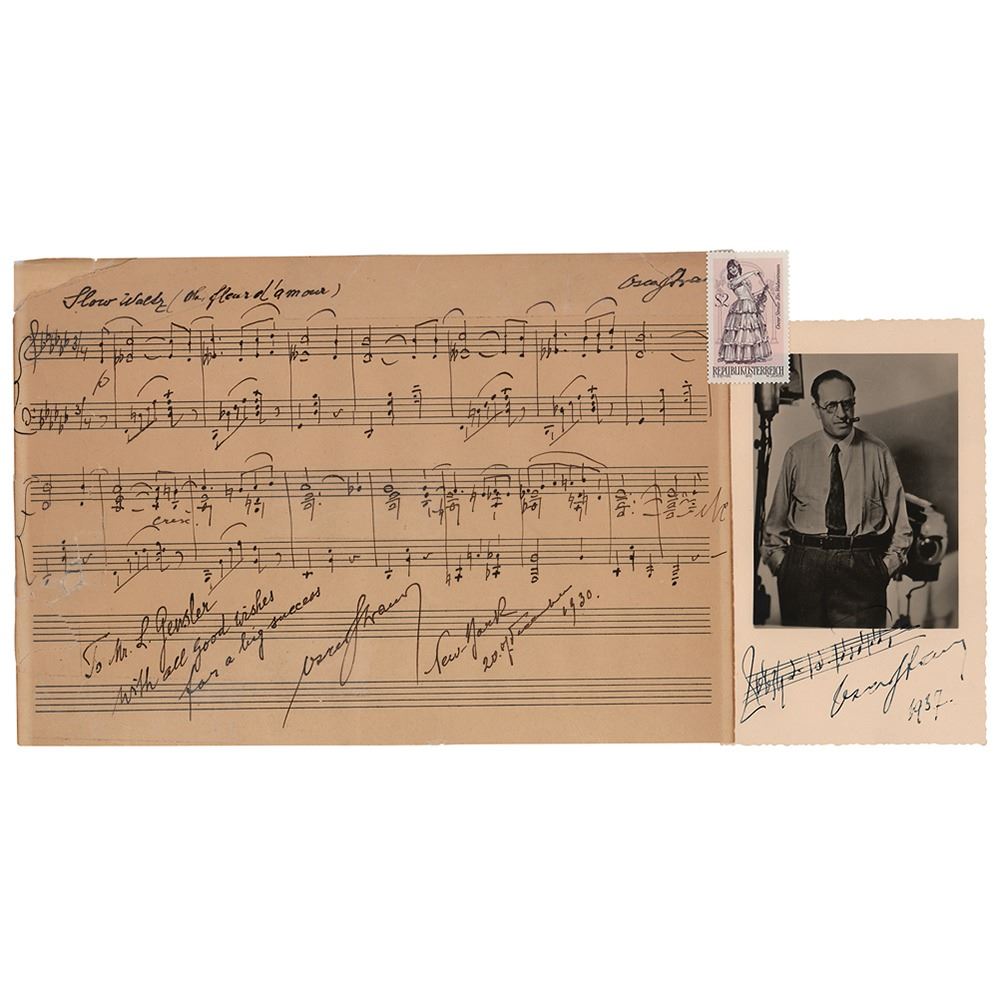 Slow Waltz (Oh, fleur d'amour)
Oscar Straus
p
cresc.
etc
To Mr. L. Gensler
with all good wishes
for a big success
Oscar Straus
New-York
20. December
1930.
S2
Oscar Straus: Ein Walzertraum
REPUBLIK ÖSTERREICH
Oscar Straus
1937.